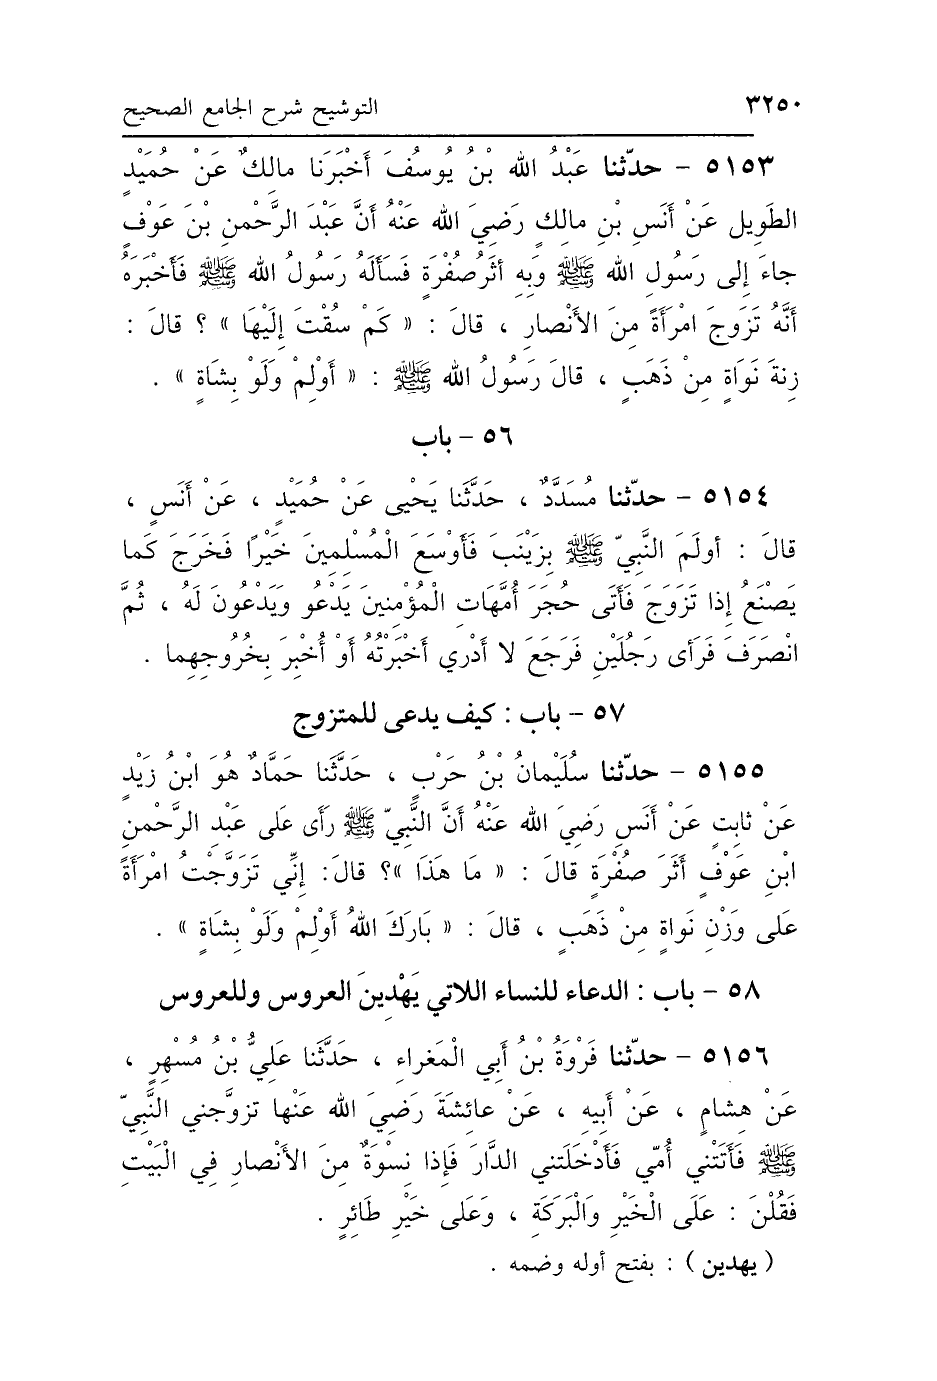 ٣٢٥٠ التوشيح شرح الجامع الصحيح
٥١٥٣ - حدّثنا عَبْدُ الله بْنُ يُوسُفَ أَخْبَرَنَا مالكٌ عَنْ حُمَيْدٍ
الطَوِيل عَنْ أَنَسِ بْنِ مالكٍ رَضِيَ الله عَنْهُ أَنَّ عَبْدَ الرَّحْمنِ بْنَ عَوْفٍ
جاءَ إلى رَسُولِ الله ﷺ وَبِهِ أثَرُ صُفْرَةٍ فَسَأَلَهُ رَسُولُ الله ﷺ فَأَخْبَرَهُ
أَنَّهُ تَزَوجَ امْرَأَةً مِنَ الأَنْصارِ ، قالَ : « كَمْ سُقْتَ إِلَيْهَا » ؟ قالَ :
زِنةَ نَوَاةٍ مِنْ ذَهَبٍ ، قالَ رَسُولُ الله ﷺ : « أَوْلِمْ وَلَوْ بِشَاةٍ » .
٥٦ - باب
٥١٥٤ - حدّثنا مُسَدَّدٌ ، حَدَّثَنا يَحْيى عَنْ حُمَيْدٍ ، عَنْ أَنَسٍ ،
قالَ : أولَمَ النَّبيّ ﷺ بِزَيْنَبَ فَأَوْسَعَ الْمُسْلِمِينَ خَيْرًا فَخَرَجَ كَما
يَصْنَعُ إذا تَزَوَجَ فَأَتَى حُجَرَ أُمَّهَاتِ الْمُؤْمِنينَ يَدْعُو وَيَدْعُونَ لَهُ ، ثُمَّ
انْصَرَفَ فَرَأى رَجُلَيْنِ فَرَجَعَ لا أَدْرِي أَخْبَرْتُهُ أَوْ أُخْبِرَ بِخُرُوجِهِما .
٥٧ - باب : كيف يدعى للمتزوج
٥١٥٥ - حدّثنا سُلَيْمانُ بْنُ حَرْبٍ ، حَدَّثَنا حَمَّادٌ هُوَ ابْنُ زَيْدٍ
عَنْ ثابِتٍ عَنْ أَنَسٍ رَضِيَ الله عَنْهُ أَنَّ النَّبيّ ﷺ رأى عَلى عَبْدِ الرَّحْمنِ
ابْنِ عَوْفٍ أَثَرَ صُفْرَةٍ قالَ : « مَا هَذَا »؟ قالَ: إنّي تَزَوَّجْتُ امْرأَةً
عَلى وَزْنِ نَواةٍ مِنْ ذَهَبٍ ، قالَ : « بَارَكَ اللهُ أَوْلِمْ وَلَوْ بشَاةٍ » .
٥٨ - باب : الدعاء للنساء اللاتي يَهْدِينَ العروس وللعروس
٥١٥٦ - حدّثنا فَرْوَةُ بْنُ أَبي الْمَغراء ، حَدَّثَنا عَليُّ بْنُ مُسْهِرٍ ،
عَنْ هِشامٍ ، عَنْ أَبيهِ ، عَنْ عائِشَةَ رَضِيَ الله عَنْها تزوَّجني النَّبيّ
ﷺ فَأَتَتْني أُمّي فَأَدْخَلَتني الدَّارَ فَإذا نِسْوَةٌ مِنَ الأَنْصارِ فِي الْبَيْتِ
فَقُلْنَ : عَلَى الْخَيْرِ وَالْبَرَكَةِ ، وَعَلى خَيْرِ طَائِرٍ .
( يهدين ) : بفتح أوله وضمه .